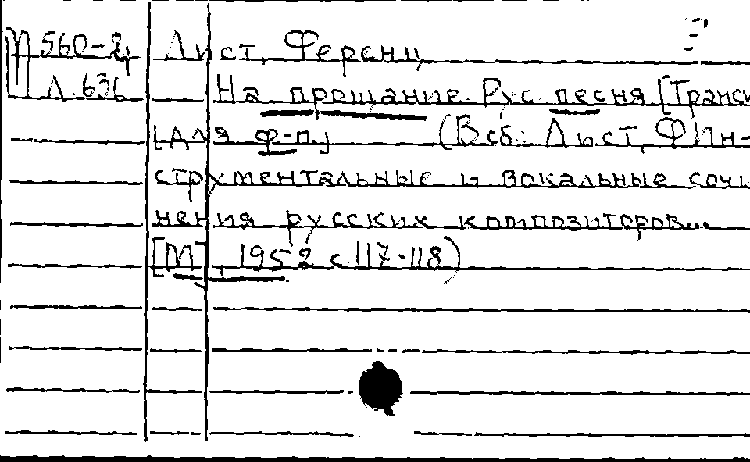 М 560-2 Лист, Ференц
Л 636 На прощание. Рус. песня [Транск
[для ф-п.] (В сб.: Лист, Ф. Ин-
струментальные и вокальные сочи
нения русских композиторов...
[М], 1952 с 117-118)